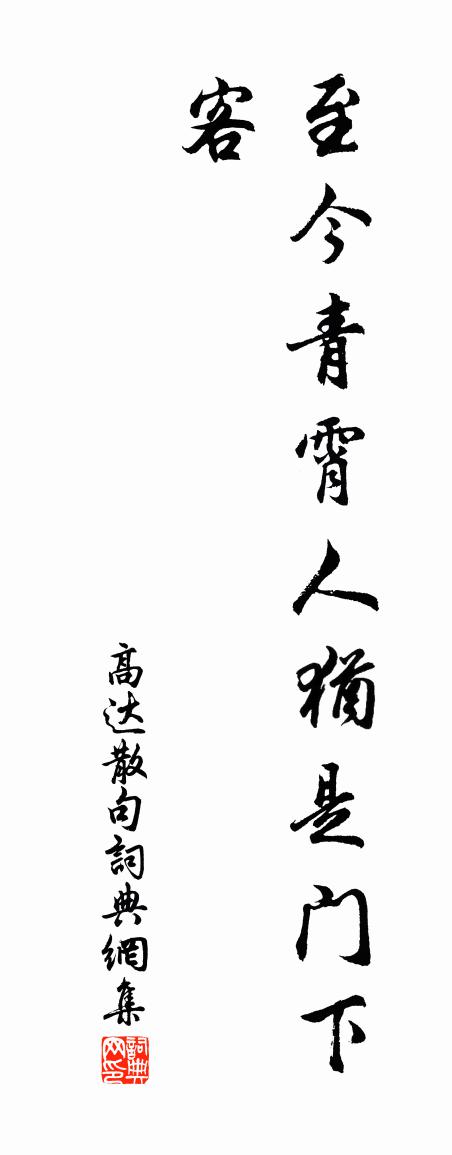 至今青霄人犹是门下
客
高达散句詞典網集
詞典网印